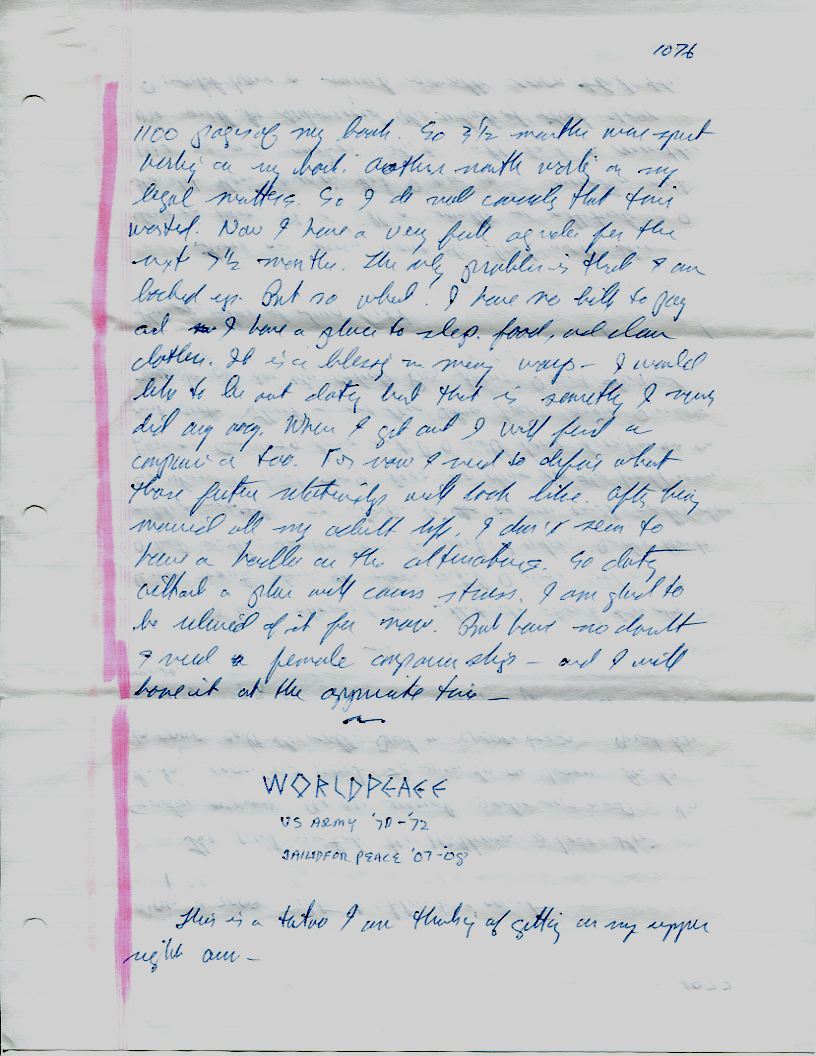 1076
1100 pages of my book. So 3 1/2 months were spent
working on my book. Another month working on my
legal matters. So I do not consider that time
wasted. Now I have a very full agenda for the
next 7 1/2 months. The only problem is that I am
locked up. But so what! I have no bills to pay
and I have a place to sleep, food, and clean
clothes. It is a blessing in many ways - I would
like to be out dating but that is something I never
did any way. When I get out I will find a
companion too. For now I need to define what
those future relationships will look like. After being
married all my adult life, I don't seem to
have a handle on the alternatives. So dating
without a plan will cause stress. I am glad to
be relieved of it for now. But have no doubt
I need a female companionship - and I will
have it at the appropriate time -
WORLDPEACE
US ARMY '70-'72
JAILED FOR PEACE '07-'08
This is a tatoo I am thinking of getting on my upper
right arm -